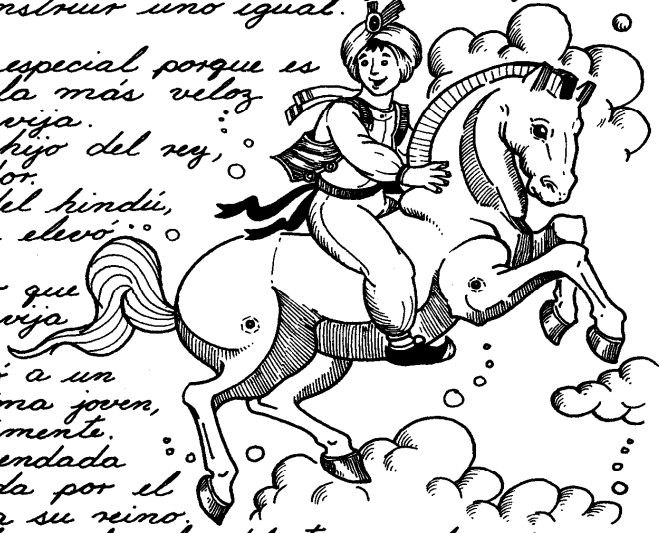 nstruir uno igual.
especial porque es
la más veloz
vija.
hijo del rey,
dor.
del hindú,
elevó
que
vija
a un
ma joven,
mente.
endada
da por el
a su reino.